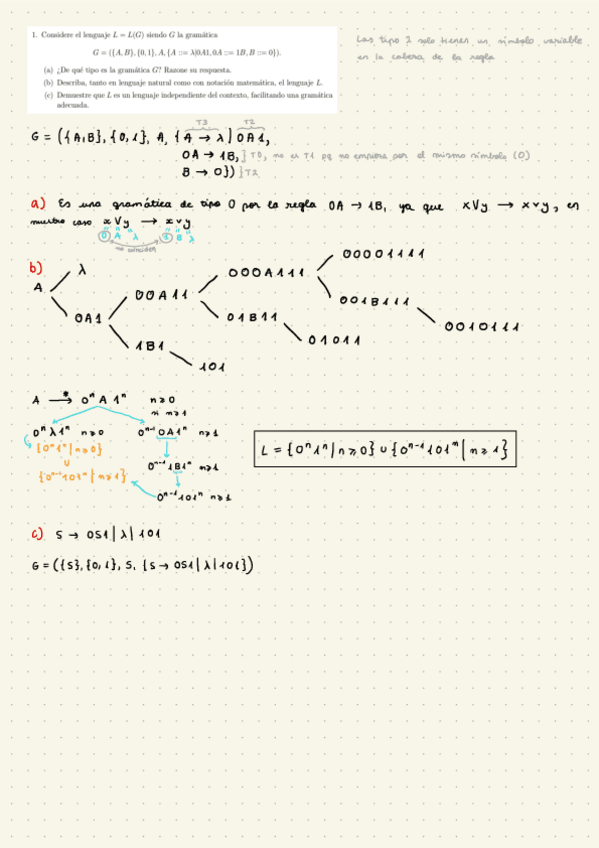 1. Considere el lenguaje L = L(G) siendo G la gramática
G = ({A, B}, {0, 1}, A, {A ::= λ|0A1, 0A ::= 1B, B ::= 0}).
(a) ¿De qué tipo es la gramática G? Razone su respuesta.
(b) Describa, tanto en lenguaje natural como con notación matemática, el lenguaje L.
(c) Demuestre que L es un lenguaje independiente del contexto, facilitando una gramática
adecuada.
Las tipo 2 solo tienen un símbolo variable
en la cabeza de la regla
T3 T2
G = ({A,B}, {0,1}, A, {A → λ | 0A1,
0A → 1B, } T0, no es T1 pq no empieza por el mismo símbolo (0)
B → 0}) } T2
a) Es una gramática de tipo 0 por la regla 0A → 1B, ya que xVy → xvy, en
nuestro caso xVy → xvy
0 A λ 1 B λ
no coinciden
b)
A
λ
0A1
00A11
1B1
101
000A111
01B11
01011
00001111
001B111
0010111
A →* 0ⁿ A 1ⁿ n≥0
si n≥1
0ⁿ λ 1ⁿ n≥0 0ⁿ⁻¹ 0A1ⁿ n≥1
{0ⁿ1ⁿ | n≥0}
∪
{0ⁿ⁻¹101ⁿ | n≥1}
0ⁿ⁻¹ 1B1ⁿ n≥1
0ⁿ⁻¹101ⁿ n≥1
L = {0ⁿ1ⁿ | n≥0} ∪ {0ⁿ⁻¹101ⁿ | n≥1}
c) S → 0S1 | λ | 101
G = ({S}, {0,1}, S, {S → 0S1 | λ | 101})